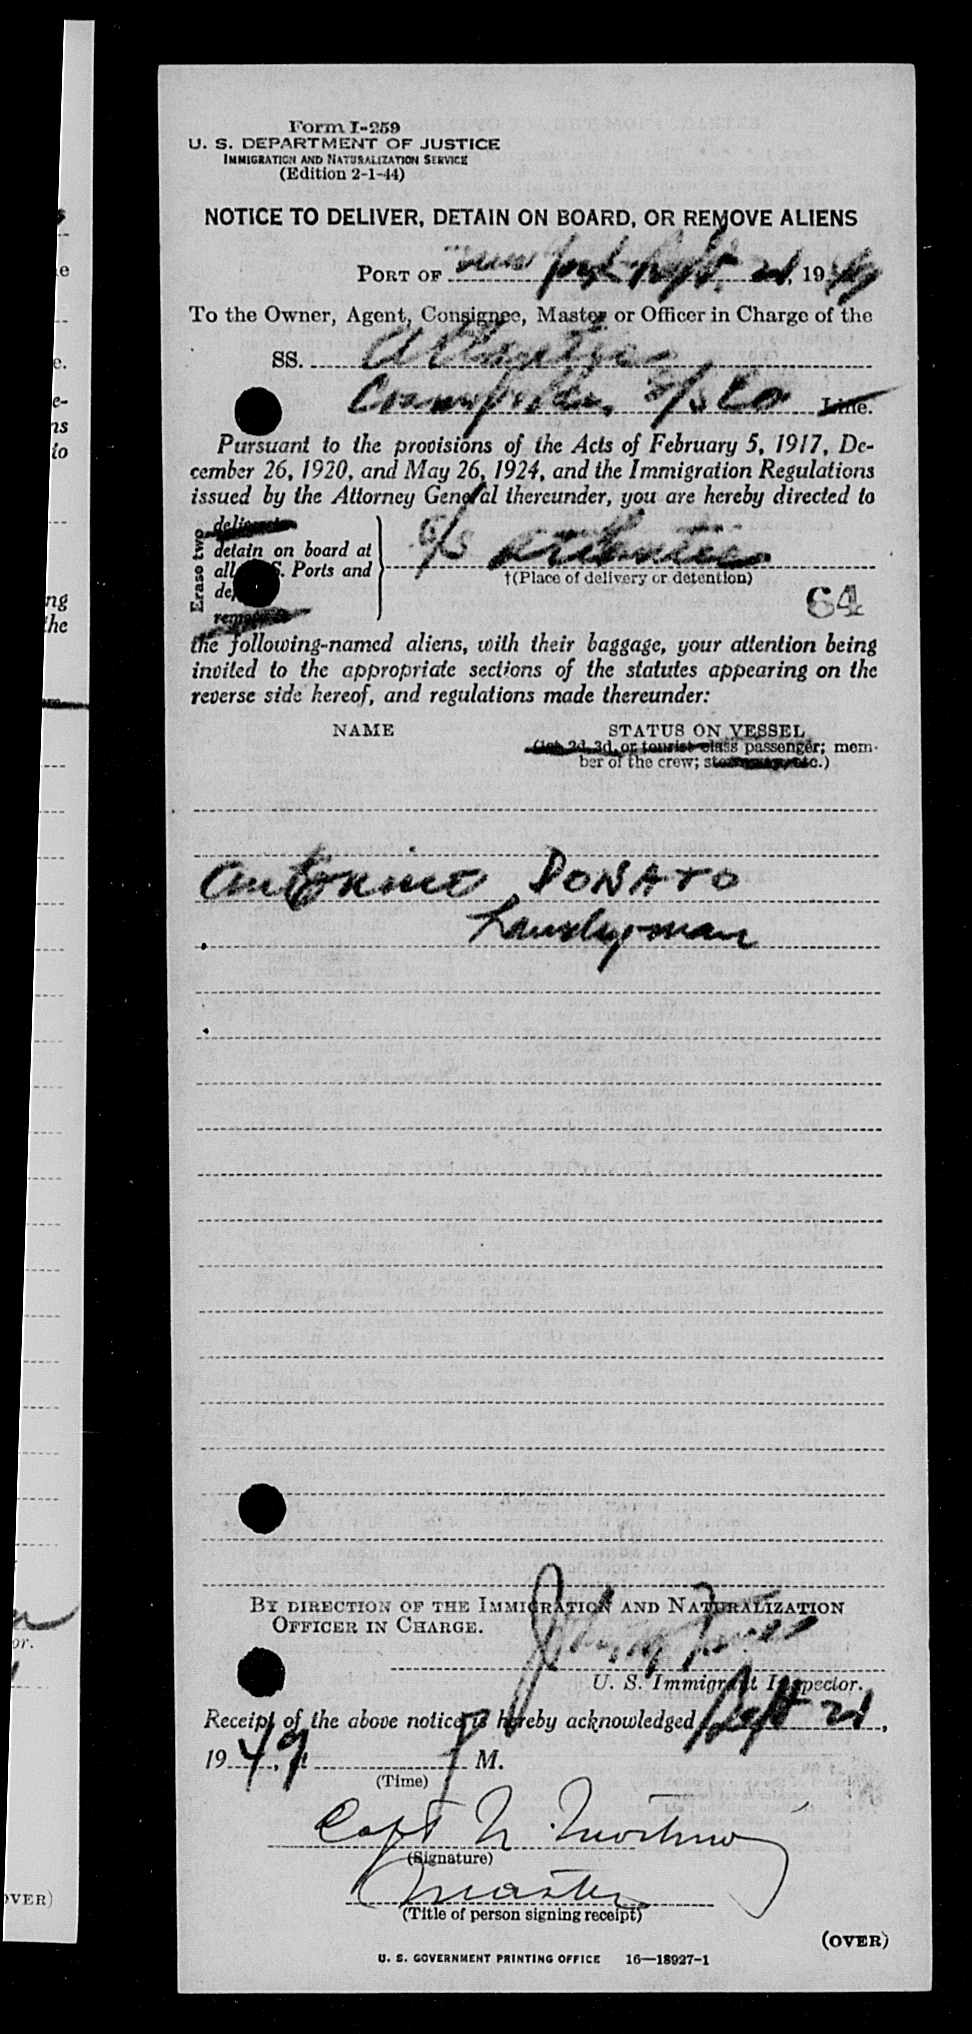 Form I-259
U. S. DEPARTMENT OF JUSTICE
IMMIGRATION AND NATURALIZATION SERVICE
(Edition 2-1-44)
NOTICE TO DELIVER, DETAIN ON BOARD, OR REMOVE ALIENS
PORT OF New York Sept. 21, 1949
To the Owner, Agent, Consignee, Master or Officer in Charge of the
SS. Atlantic
S/S Co Line.
Pursuant to the provisions of the Acts of February 5, 1917, De-
cember 26, 1920, and May 26, 1924, and the Immigration Regulations
issued by the Attorney General thereunder, you are hereby directed to
Erase two
deliver
detain on board at
all U. S. Ports and
remove
S/S Atlantic
†(Place of delivery or detention)
64
the following-named aliens, with their baggage, your attention being
invited to the appropriate sections of the statutes appearing on the
reverse side hereof, and regulations made thereunder:
NAME STATUS ON VESSEL
(1st, 2d, 3d, or tourist class passenger; mem-
ber of the crew; stowaway, etc.)
Antonino DONATO
Laundryman
BY DIRECTION OF THE IMMIGRATION AND NATURALIZATION
OFFICER IN CHARGE.
U. S. Immigrant Inspector.
Receipt of the above notice is hereby acknowledged Sept 21,
1949, P M.
(Time)
Capt N.
(Signature)
Master
(Title of person signing receipt)
(OVER)
U. S. GOVERNMENT PRINTING OFFICE 16—18927-1
e
e.
e-
ns
to
ng
the
or.
OVER)